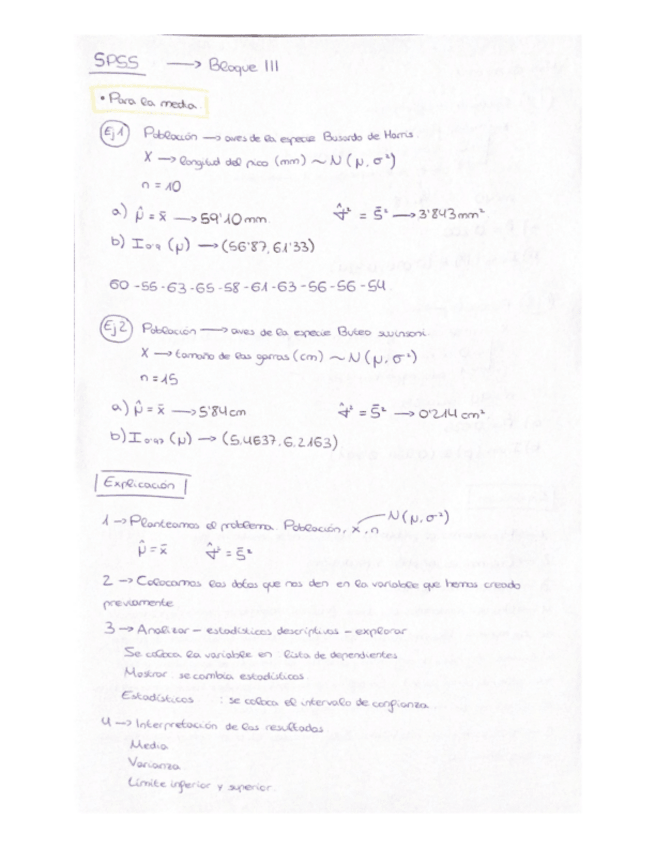 SPSS → Bloque III
• Para la media.
Ej 1 Población → aves de la especie Busardo de Harris.
X → longitud del pico (mm) ~ N(μ, σ²)
n = 10
a) μ̂ = x̄ → 59'10 mm. σ̂² = S̄² → 3'843 mm²
b) I₀'₉ (μ) → (56'87, 61'33)
60 - 55 - 63 - 65 - 58 - 61 - 63 - 56 - 56 - 54
Ej 2 Población → aves de la especie Buteo swinsoni.
X → tamaño de las garras (cm) ~ N(μ, σ²)
n = 15
a) μ̂ = x̄ → 5'84 cm σ̂² = S̄² → 0'214 cm²
b) I₀'₉₇ (μ) → (5.4637, 6.2163)
Explicación
1 → Planteamos el problema. Población, x, n N(μ, σ²)
μ̂ = x̄ σ̂² = S̄²
2 → Colocamos los datos que nos den en la variable que hemos creado
previamente
3 → Analizar - estadísticos descriptivos - explorar
Se coloca la variable en lista de dependientes
Mostrar : se cambia estadísticos
Estadísticos : se coloca el intervalo de confianza.
4 → Interpretación de los resultados
Media
Varianza
Límite inferior y superior.